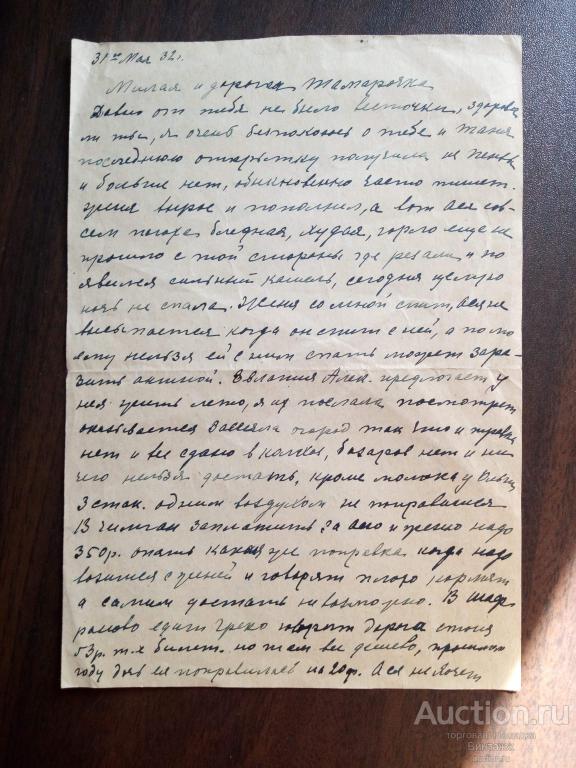 31го Мая 32г.
Милая и дорогая Тамарочка
Давно от тебя не было весточки, здорова
ли ты, я очень беспокоюсь о тебе и Таня
последнюю открытку получила из
и больше нет, обыкновенно часто пишет.
Женя вырос и пополнел, а вот Ася сов-
сем плоха бледная, худая, горло еще не
прошло с той стороны где резали и по
явился сильный кашель, сегодня целую
ночь не спала. Женя со мной спит, Ася не
высыпается когда он спит с ней, а по мо
ему нельзя ей с ним спать может зара-
зить ангиной. Евлалия Алек. предлагает у
нея жить лето, я их послала посмотреть
оказывается засеяла огород так что и травки
нет и все сдано в колхоз, базаров нет и ни
чего нельзя достать, кроме молока у
3 стак. одним воздухом не поправишся
В Чимган заплатить за Асю и Женю надо
350р. опять какая же поправка когда надо
возиться с Женей и говорят плохо кормят
а самим достать невозможно. В
раново ехать дорога стоит
53р. т-е билет. но там все дешево, прошлом
году два ея поправилась на 20ф. Ася не хочет
Auction.ru
торговая площадка
Винтажж
auction.ru